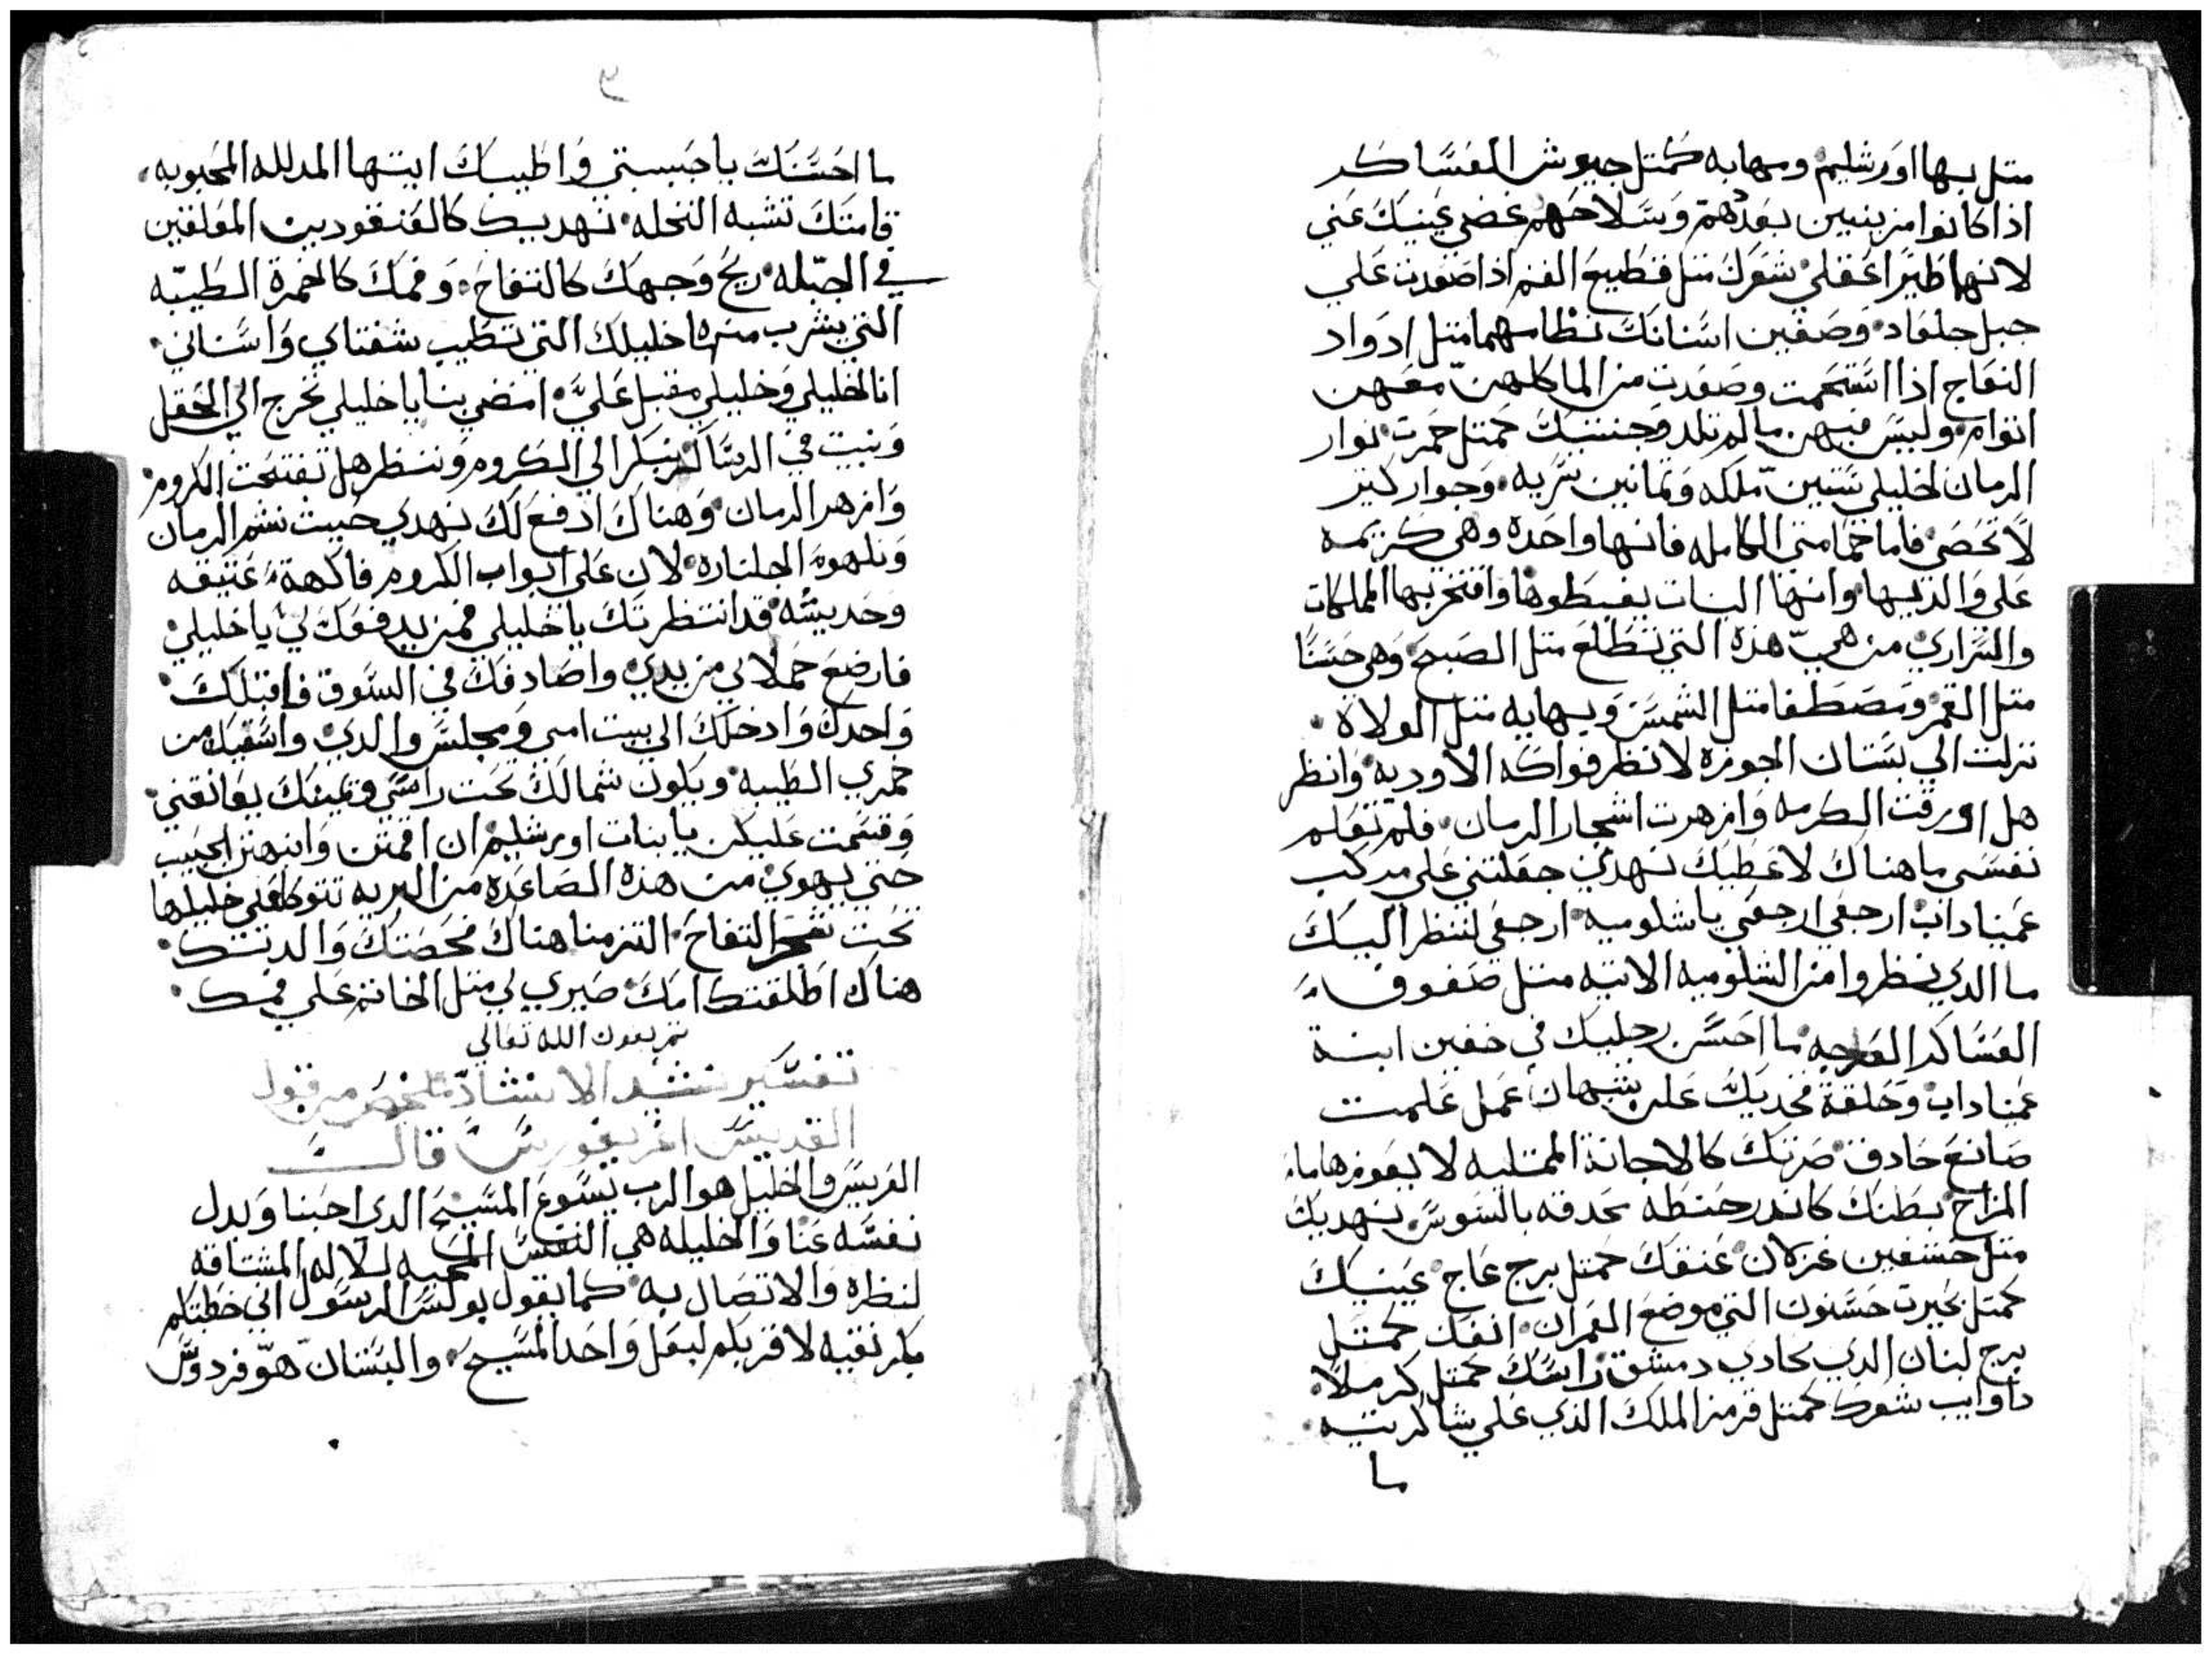 متل بها اورشليم ومهابه كمتل جيوش العساكر
اذا كانوا مزينيين بعدهم وسلاحهم غضي عينيك عني
لانها طيرا عقلي شعرك متل قطيع الغنم اذا صعدت علي
جبل جلعاد وصفين اسنانك نظامهما متل ادواد
النعاج اذا استحمت وصعدت من الما كلهن معهن
اتوام وليس فيهن مالم تلد وجنتيك كمتل حمرت نوار
الرمان لخليلي ستين ملكه وتمانين سريه وجوار كتير
لا تحصي فاما حمامتي الكامله فانها واحده وهي كريمه
علي والديها وانها البنات يغبطوها وافتخر بها الملكات
والسراري من هي هذه التي تطلع متل الصبح وهي حسنا
متل القمر ومصطفا متل الشمس ويهابه متل الولاة
نزلت الي بستان الجوزه لانظر فواكه الاوديه وانظر
هل اورقت الكرمه وازهرت اشجار الرمان فلم تعلم
نفسي ما هناك لاعطيك نهدي جعلتني علي مركب
عميناداب ارجعي ارجعي يا شلوميه ارجعي لننظر اليك
ما الدي نظروا من الشلوميه الاتيه متل صفوف
العساكر ما احسن رجليك في خفين ابنة
عميناداب وحلقة فخديك علي عمل علمت
صانع حادق صرتك كالاجانة الممتليه لا يعوزها ماء
المزاج بطنك كاندر حنطه محدقه بالسوس نهديك
متل خشفين غزلان عنقك كمتل برج عاج عينيك
كمتل بحيرت حسنون التي موضع القمران انفك كمتل
برج لبنان الدي يحادي دمشق راسك كمتل كرملا
داوايب شعرك كمتل قرمز الملك الذي علي شاكريته
ما
ما احسنك يا حبيبتي واطيبك ايتها المدلله المحبوبه
قامتك تشبه النخله نهديك كالعنقودين المعلقين
في الجبله ريح وجهك كالتفاح وفمك كالخمرة الطيبه
التي يشرب منها خليلك التي تطيب شفتاي واسناني
انا لخليلي وخليلي مقبل علي امضي بنا يا خليلي نخرج الي الحقل
ونبيت في الدساكر نبكر الي الكروم وننظر هل تفتحت الكروم
وازهر الرمان وهناك ادفع لك نهدي حيث نشم الرمان
ونلهوه الجلناره لان علي ابواب الكروم فاكهة عتيقه
وحديته قد انتظرتك يا خليلي فمن يدفعك لي يا خليلي
فارضع حملا لي من يدي واصادفك في السوق فاقبلك
واحدك وادخلك الي بيت امي ومجلس والدي واسقيك من
خمري الطيبه ويكون شمالك تحت راسي ويمينك يعانقني
وقسمت عليكن يا بنات اورشليم ان اقمتن وانبهتن الحبيب
حتي يهوي من هذه الصاعده من البريه تتوكا علي خليلها
تحت شجر التفاح التزمنا هناك مخضتك والدتك
هناك اطلقتك امك صيري لي متل الخاتم علي فمك
تم بعون الله تعالي
تفسير نشيد الانشاد ملخص من قول
القديس اغريغوريس قالــــ
العريس والخليل هو الرب يسوع المسيح الدي احبنا وبدل
نفسه عنا والخليله هي النفس المحبه للاله المشتاقه
لنظره والاتصال به كما يقول بولس الرسول اني خطبتكم
بكر نقيه لاقربكم لبعل واحد المسيح والبستان هو فردوس